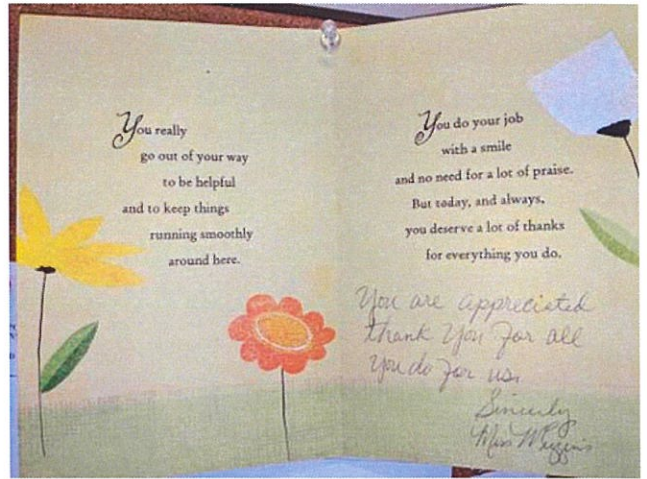 You really
go out of your way
to be helpful
and to keep things
running smoothly
around here.
You do your job
with a smile
and no need for a lot of praise.
But today, and always,
you deserve a lot of thanks
for everything you do.
You are appreciated
thank You For all
You do For us,
Sincerly
Miss